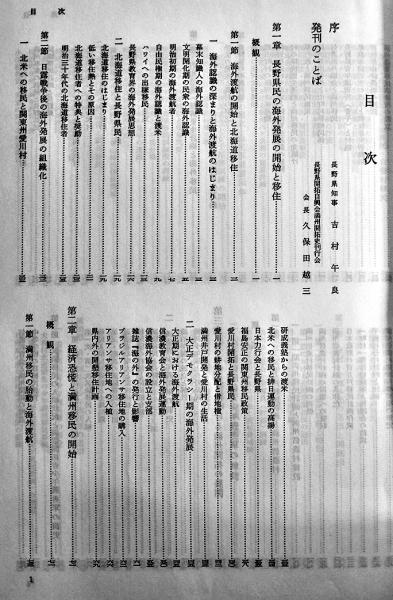 目次
目次
序 長野県知事 吉村午良
発刊のことば 長野県開拓自興会満州開拓史刊行会 会長 久保田越三
第一章 長野県民の海外発展の開始と移住
概観
第一節 海外渡航の開始と北海道移住
一 海外認識の深まりと海外渡航のはじまり
幕末知識人の海外認識
文明開化期の民衆の海外認識
明治初期の海外渡航者
自由民権期の海外認識と渡米
ハワイへの出稼移民
長野県教育界の海外発展思想
二 北海道移住と長野県民
北海道移住のはじまり
低い移住熱とその原因
北海道移住者への特典と奨励
明治三十年代の北海道移住者
第二節 日露戦争後の海外発展の組織化
一 北米への移民と関東州愛川村
研成義塾からの渡米
北米への移民と排日運動の高揚
日本力行会と長野県
福島安正の関東州移民政策
愛川村開拓と長野県民
愛川村の耕地分配と借地権
満州井戸開発と愛川村の生活
二 大正デモクラシー期の海外発展
大正期における海外渡航
信濃教育会と海外発展運動
信濃海外協会の設立と支部
雑誌『海の外』の発行と影響
ブラジルアリアンサ移住地の購入
アリアンサ移住地への入植
県内外の開墾移住計画
第二章 経済恐慌と満州移民の開始
概観
第一節 満州移民の始動と海外渡航
1